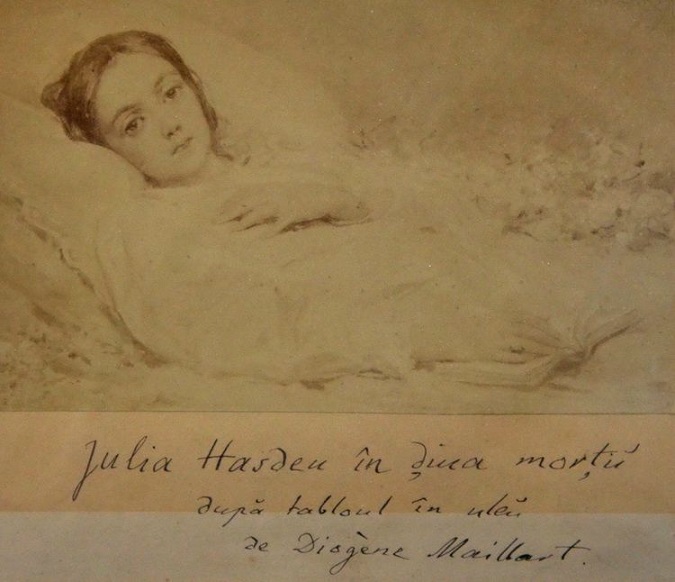 Julia Hasdeu în d̦iua morțiĭ
după tabloul în uleŭ
de Diogène Maillart.